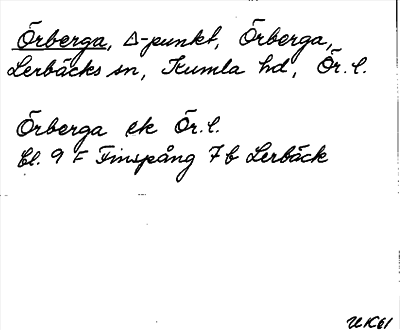 Örberga, Δ-punkt, Örberga,
Lerbäcks sn, Kumla hd, Ör. l.
Örberga ek Ör. l.
bl. 9 F Finspång 7b Lerbäck
UK61